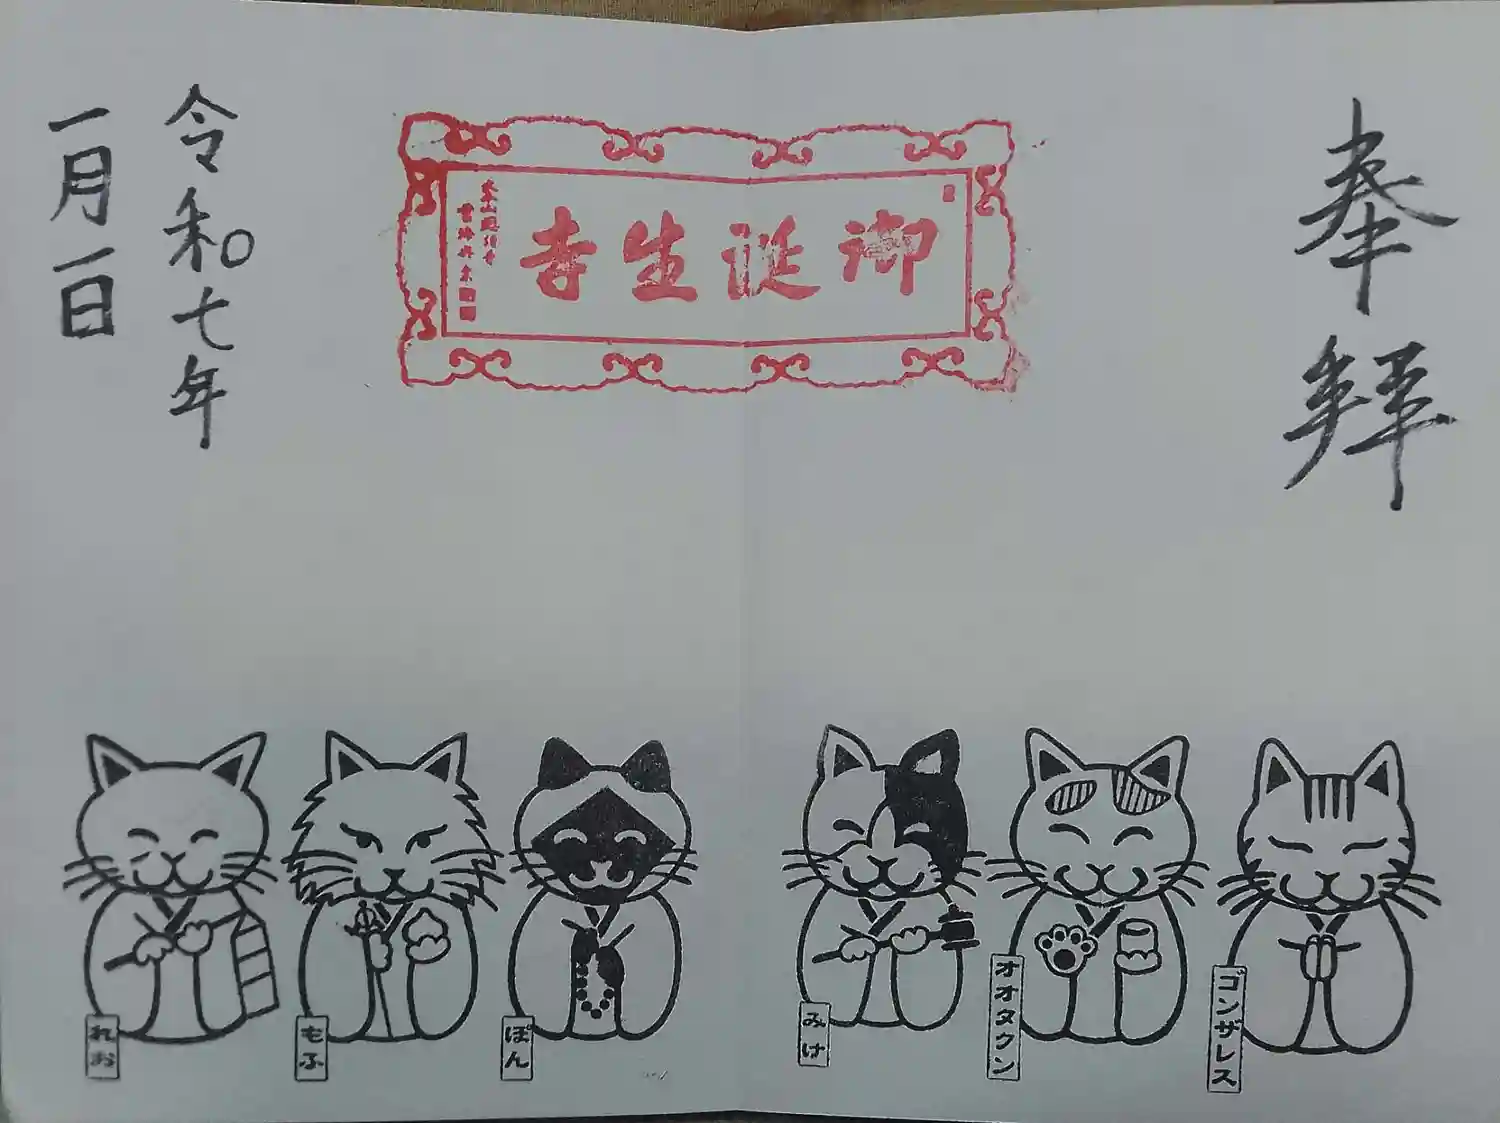 奉拝
御誕生寺
令和七年
一月一日
ゴンザレス
オオタウン
みけ
ぽん
もふ
れお